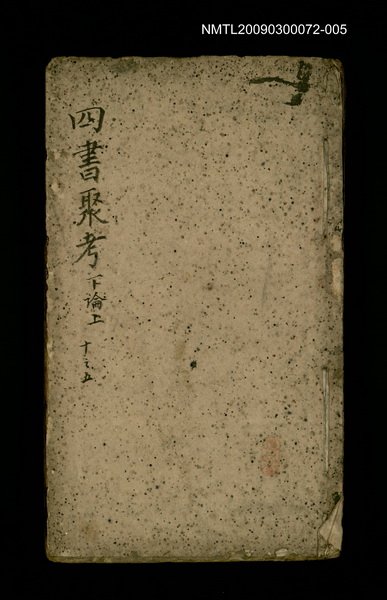 NMTL20090300072-005
四書聚考 下論上 十之五